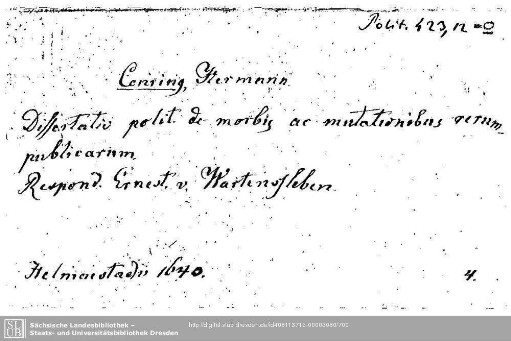 Polit. 423, n =0
Conring, Hermann
Dissertatio polit. de morbis ac mutationibus rerum
publicarum
Respond. Ernest. v. Wartensleben
Helmaestadii 1640. 4.
SLUB
Sächsische Landesbibliothek –
Staats- und Universitätsbibliothek Dresden